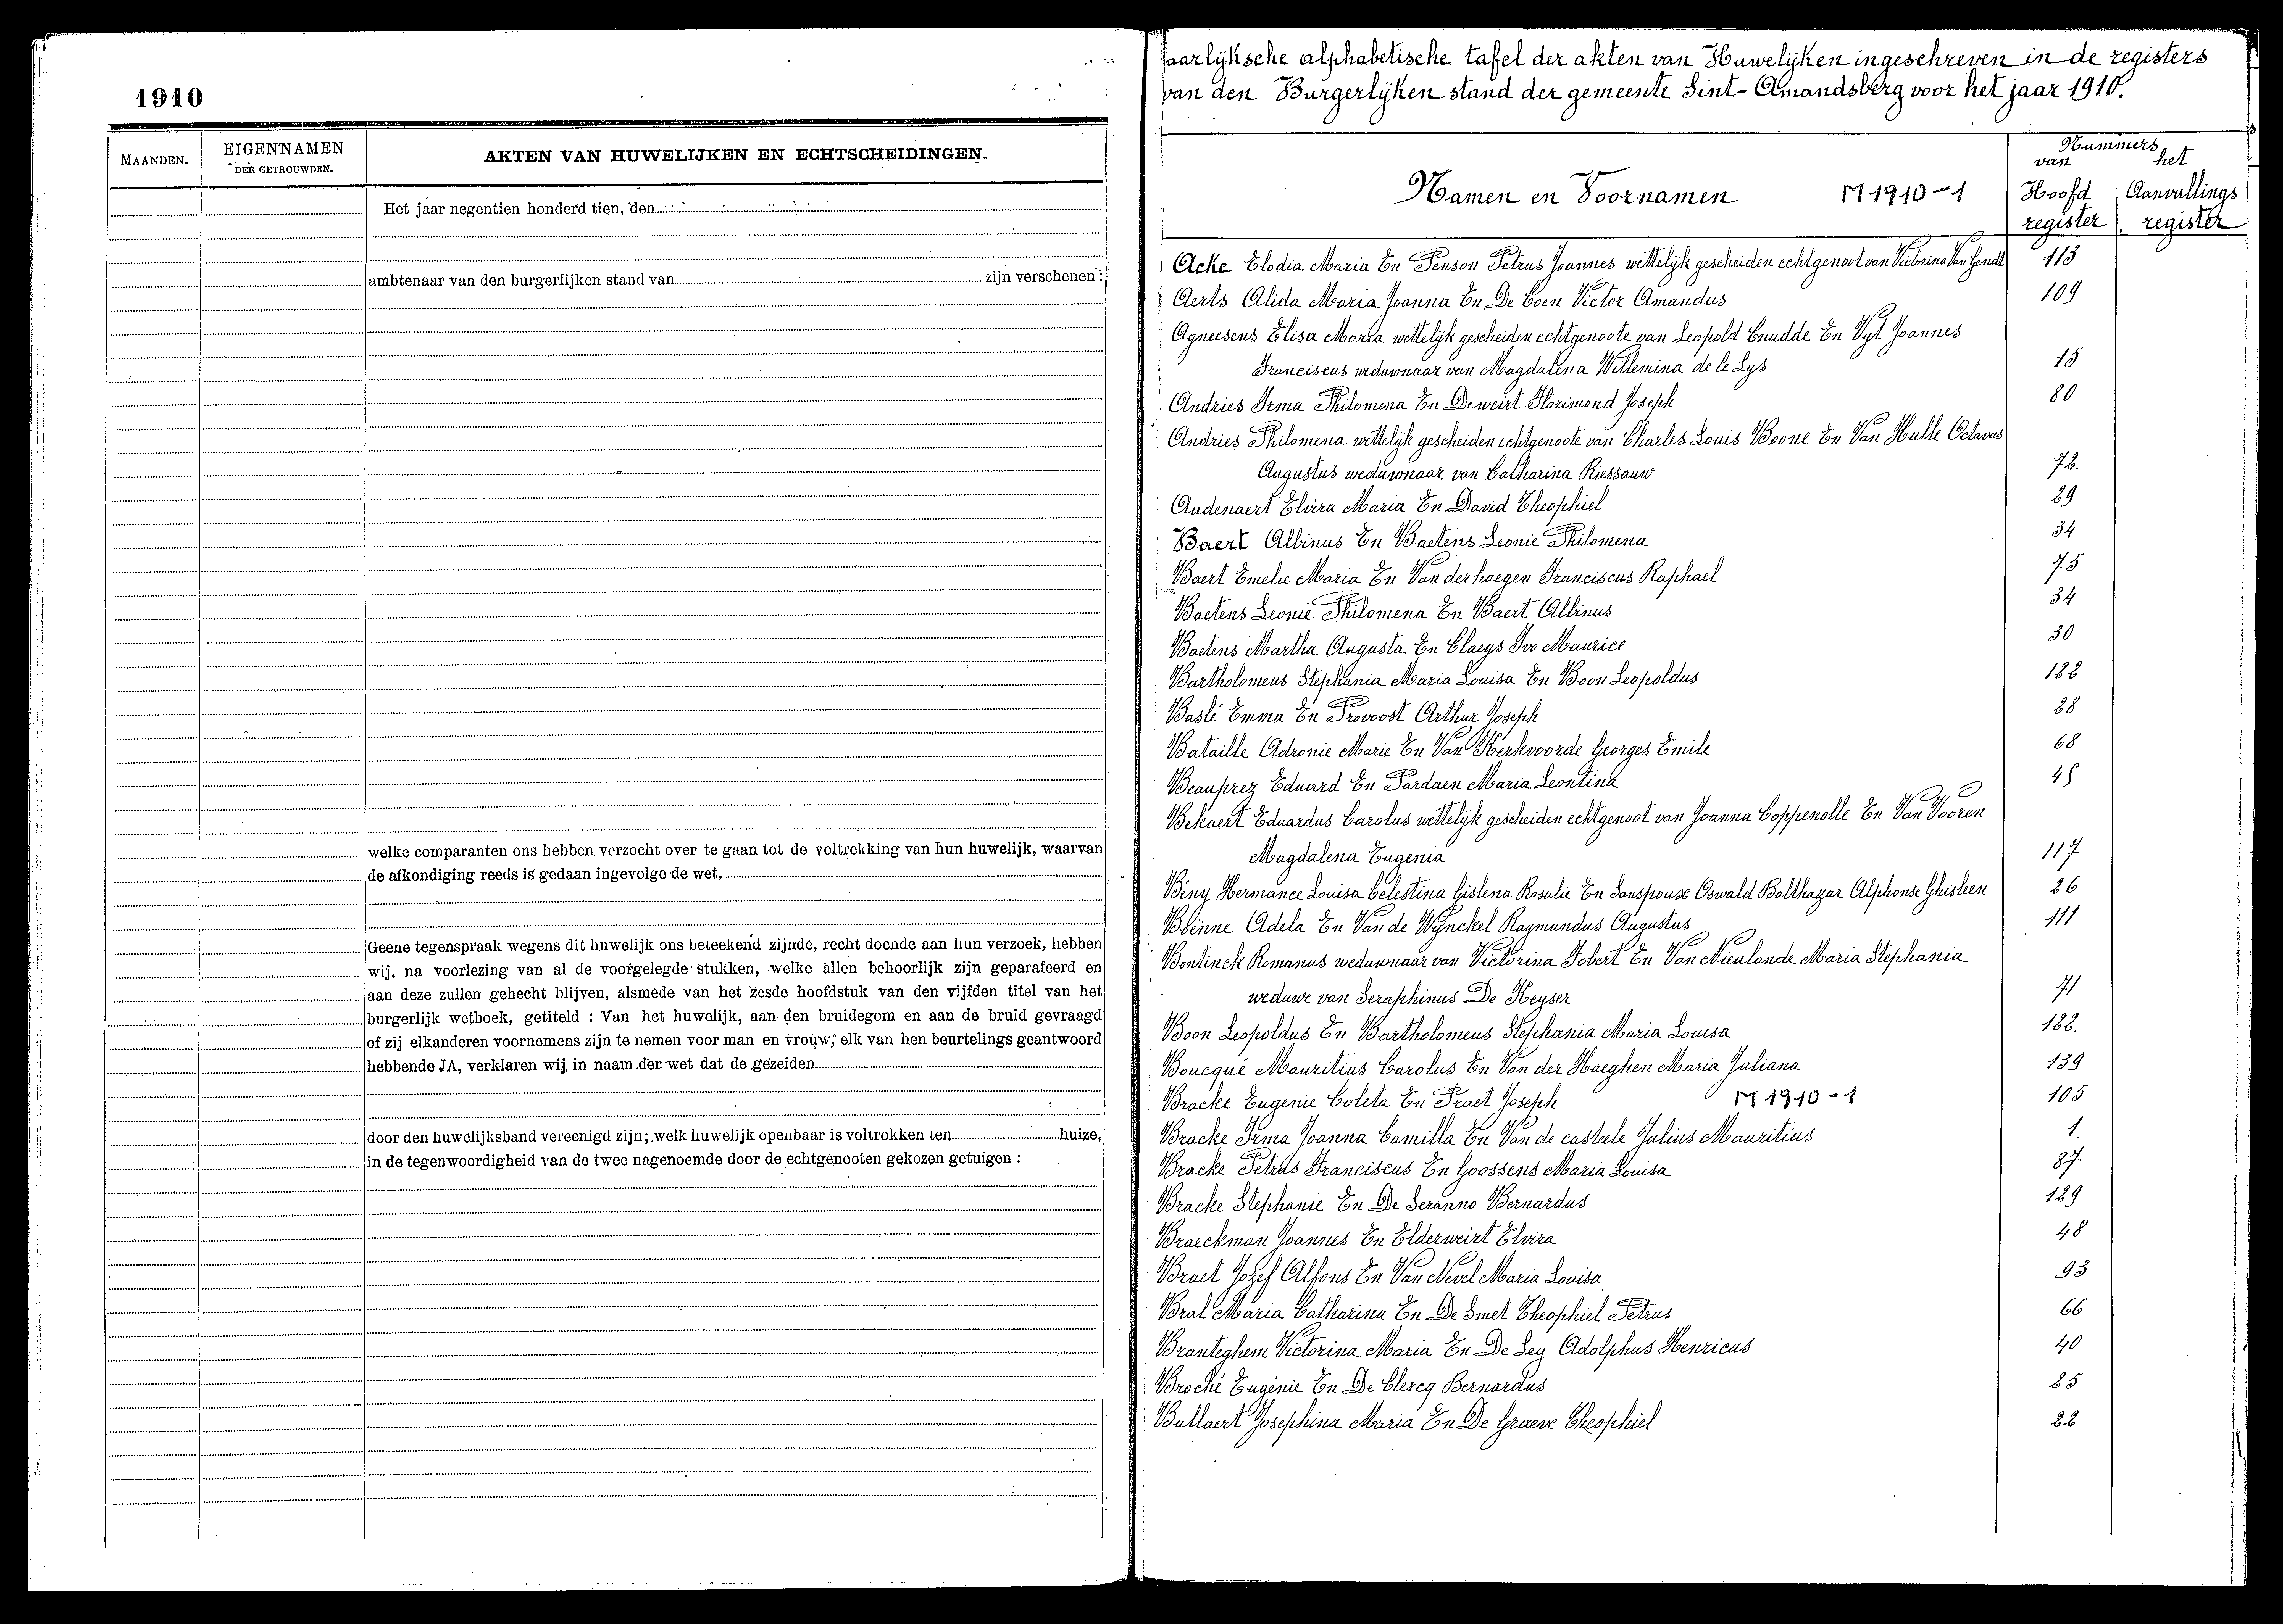 1910
MAANDEN.
EIGENNAMEN
DER GETROUWDEN.
AKTEN VAN HUWELIJKEN EN ECHTSCHEIDINGEN.
Het jaar negentien honderd tien, den
ambtenaar van den burgerlijken stand van zijn verschenen :
welke comparanten ons hebben verzocht over te gaan tot de voltrekking van hun huwelijk, waarvan
de afkondiging reeds is gedaan ingevolge de wet,
Geene tegenspraak wegens dit huwelijk ons beteekend zijnde, recht doende aan hun verzoek, hebben
wij, na voorlezing van al de voorgelegde stukken, welke allen behoorlijk zijn geparafeerd en
aan deze zullen gehecht blijven, alsmede van het zesde hoofdstuk van den vijfden titel van het
burgerlijk wetboek, getiteld : Van het huwelijk, aan den bruidegom en aan de bruid gevraagd
of zij elkanderen voornemens zijn te nemen voor man en vrouw; elk van hen beurtelings geantwoord
hebbende JA, verklaren wij in naam der wet dat de gezeiden
door den huwelijksband vereenigd zijn; welk huwelijk openbaar is voltrokken ten huize,
in de tegenwoordigheid van de twee nagenoemde door de echtgenooten gekozen getuigen :
Jaarlijksche alphabetische tafel der akten van Huwelijken ingeschreven in de registers
van den Burgerlijken stand der gemeente Sint-Amandsberg voor het jaar 1910.
Namen en Voornamen M 1910-1
Nummers
van het
Hoofd Aanvullings
register register
Acke Elodia Maria En Penson Petrus Joannes wettelijk gescheiden echtgenoot van Victorina Van Gendt 113
Aerts Alida Maria Joanna En De Coen Victor Amandus 109
Agneesens Elisa Maria wettelijk gescheiden echtgenoote van Leopold Cnudde En Vyt Joannes
Franciscus weduwnaar van Magdalena Willemina de le Lys 15
Andries Irma Philomena En Deweirt Florimond Joseph 80
Andries Philomena wettelijk gescheiden echtgenoote van Charles Louis Boone En Van Hulle Octavus
Augustus weduwnaar van Catharina Riessauw 72.
Audenaert Elvira Maria En David Theophiel 29
Baert Albinus En Baetens Leonie Philomena 34
Baert Emelie Maria En Van derhaegen Franciscus Raphael 75
Baetens Leonie Philomena En Baert Albinus 34
Baetens Martha Augusta En Claeys Ivo Maurice 30
Bartholomeus Stephania Maria Louisa En Boon Leopoldus 122
Baslé Emma En Provoost Arthur Joseph 28
Bataille Adronie Marie En Van Kerkvoorde Georges Emile 68
Beauprez Eduard En Pardaen Maria Leontina 45
Bekaert Eduardus Carolus wettelijk gescheiden echtgenoot van Joanna Coppenolle En Van Vooren
Magdalena Eugenia 117
Bény Hermance Louisa Celestina Gislena Rosalie En Sanspoux Oswald Balthazar Alphonse Ghisleen 26
Adela En Van de Wynckel Raymundus Augustus 111
Bontinck Romanus weduwnaar van Victorina Jobert En Van Nieulande Maria Stephania
weduwe van Seraphinus De Keyser 71
Boon Leopoldus En Bartholomeus Stephania Maria Louisa 122.
Boucqué Mauritius Carolus En Van der Haeghen Maria Juliana 139
Bracke Eugenie Coleta En Praet Joseph M 1910-1 105
Bracke Irma Joanna Camilla En Van de casteele Julius Mauritius 1.
Bracke Petrus Franciscus En Goossens Maria Louisa 87
Bracke Stephanie En De Seranno Bernardus 129
Braeckman Joannes En Elderweirt Elvira 48
Braet Jozef Alfons En Van Nevel Maria Louisa 93
Bral Maria Catharina En De Smet Theophiel Petrus 66
Branteghem Victorina Maria En De Ley Adolphus Henricus 40
Broché Eugénie En De Clercq Bernardus 25
Bullaert Josephina Maria En De Graeve Theophiel 22